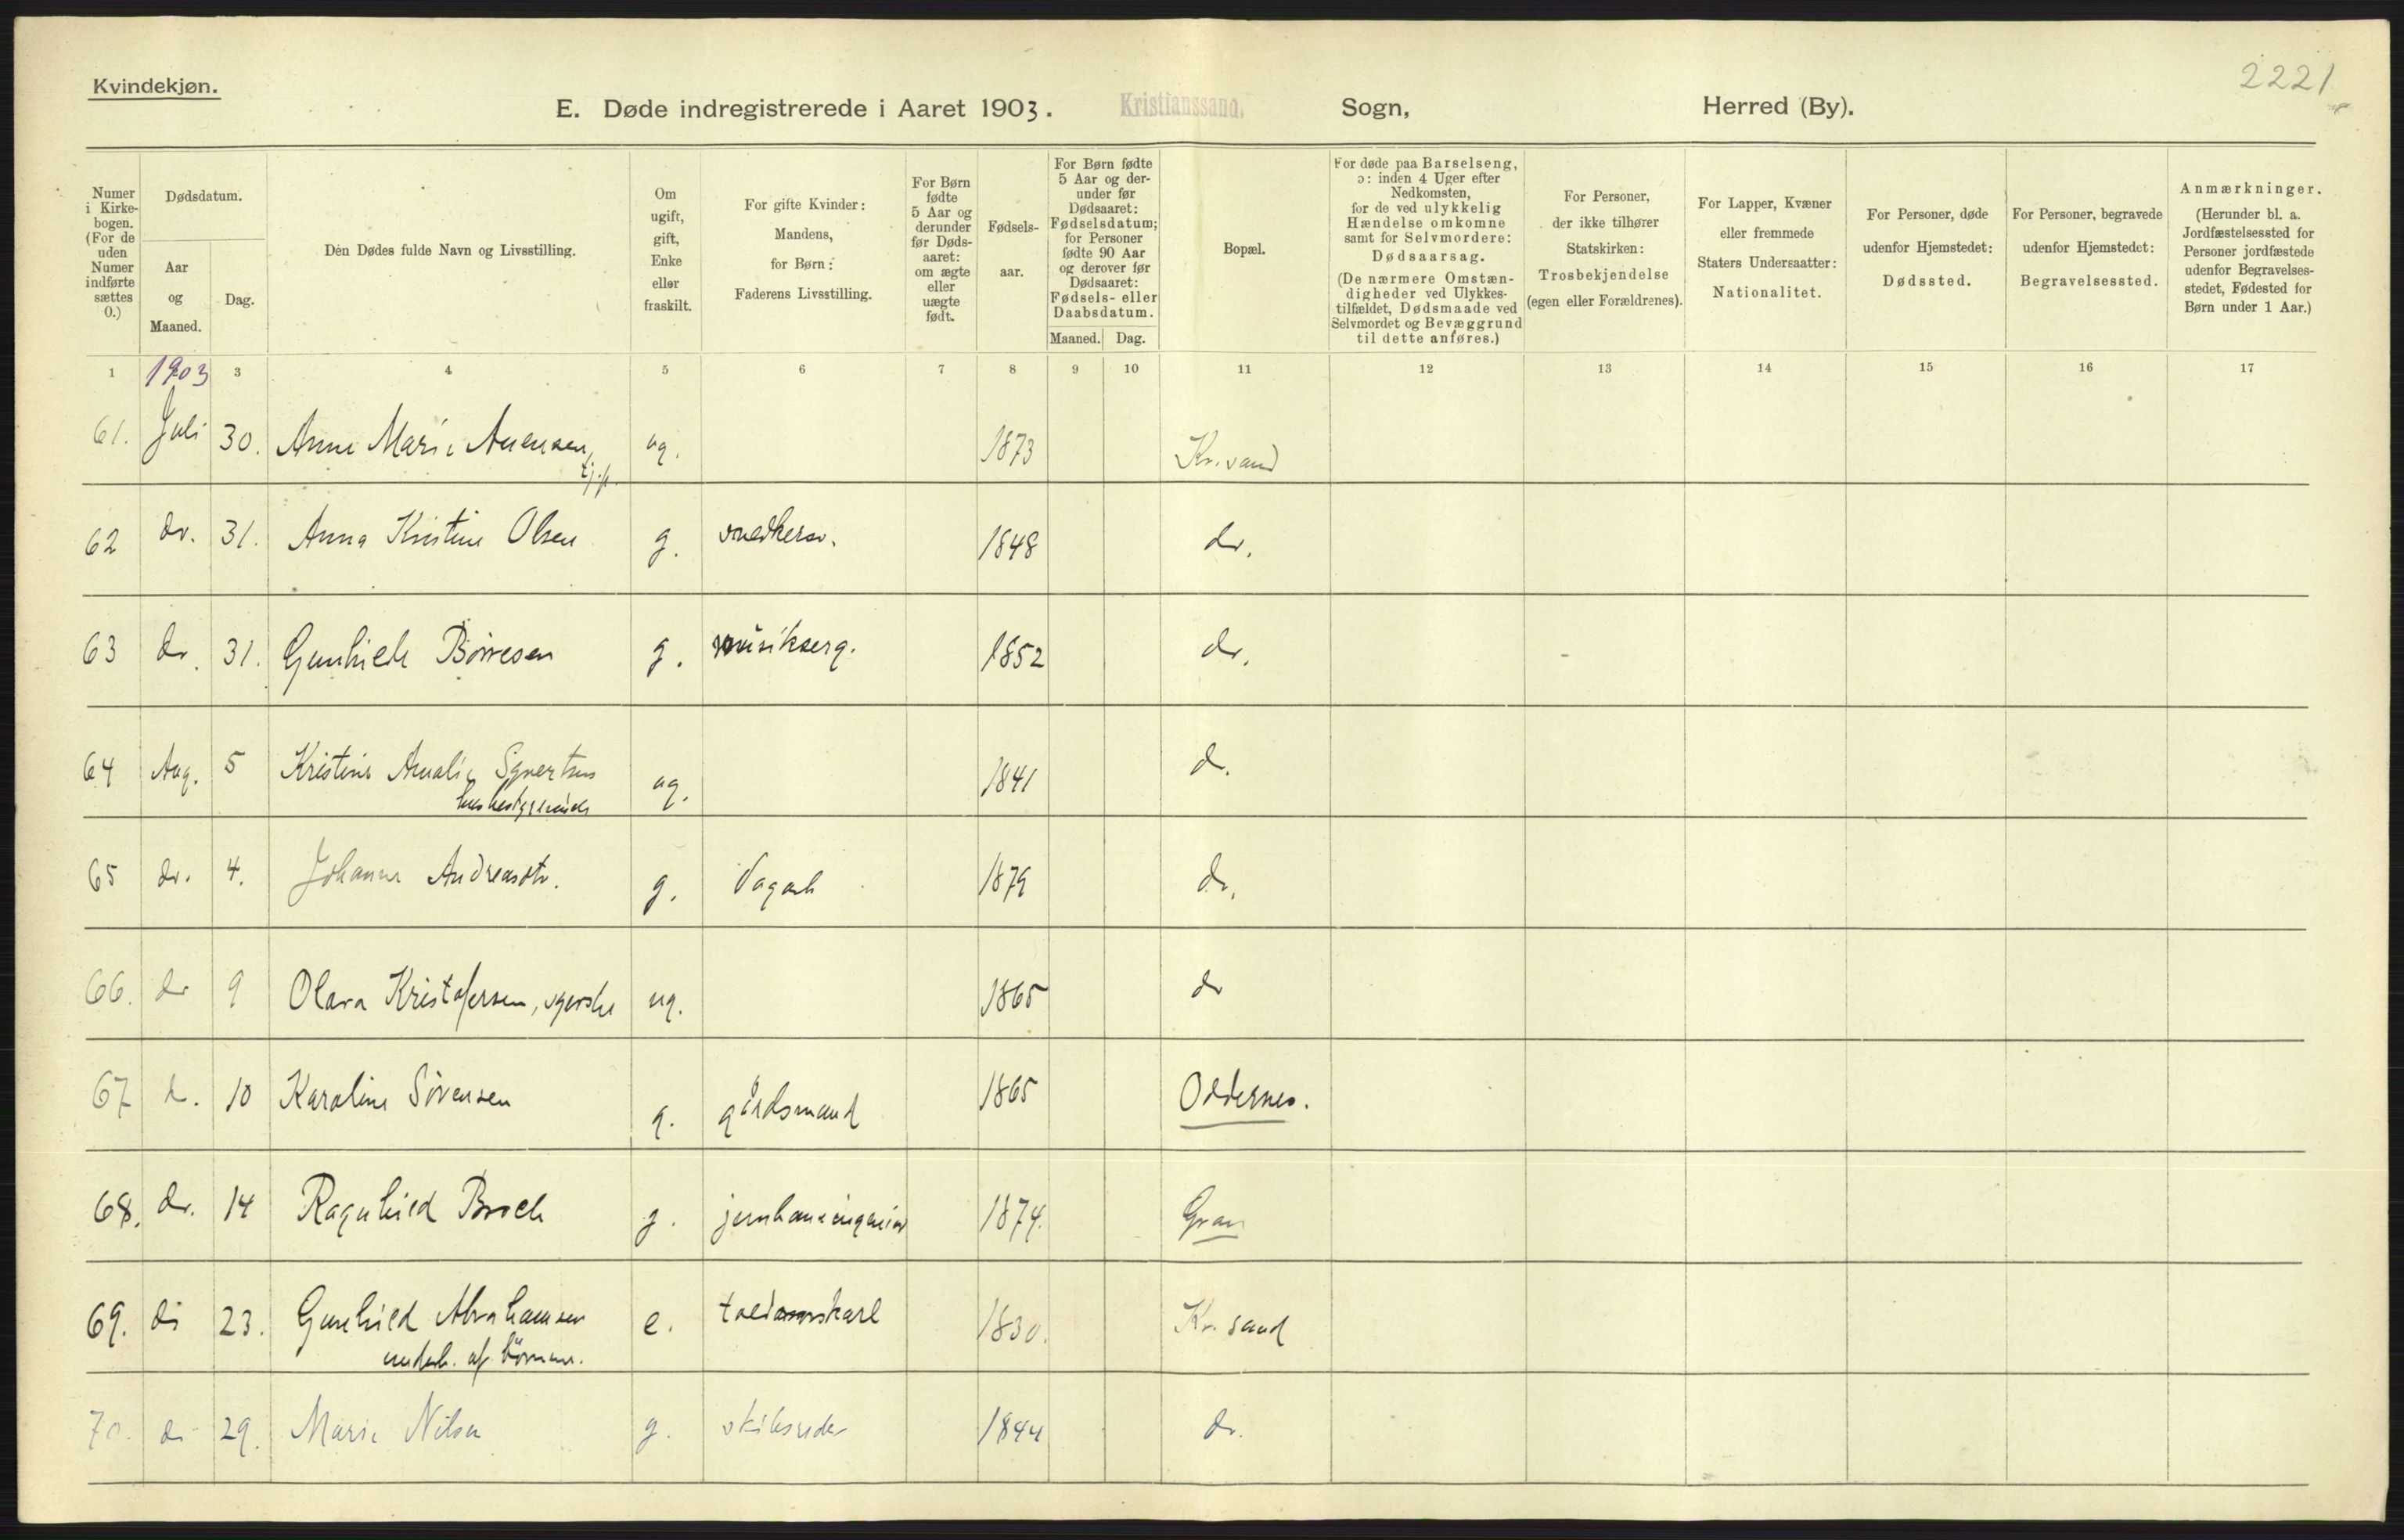 Kvindekjøn.
2221
E. Døde indregistrerede i Aaret 1903. Kristianssand. Sogn, Herred (By).
Numer i Kirkebogen. (For de uden Numer indførte sættes 0.)
Dødsdatum.
Aar og Maaned.
Dag.
Den Dødes fulde Navn og Livsstilling.
Om ugift, gift, Enke eller fraskilt.
For gifte Kvinder: Mandens, for Børn: Faderens Livsstilling.
For Børn fødte 5 Aar og derunder før Dødsaaret: om ægte eller uægte født.
Fødselsaar.
For Børn fødte 5 Aar og derunder før Dødsaaret: Fødselsdatum; for Personer fødte 90 Aar og derover før Dødsaaret: Fødsels- eller Daabsdatum.
Maaned. Dag.
Bopæl.
For døde paa Barselseng, ɔ: inden 4 Uger efter Nedkomsten, for de ved ulykkelig Hændelse omkomne samt for Selvmordere: Dødsaarsag. (De nærmere Omstændigheder ved Ulykkestilfældet, Dødsmaade ved Selvmordet og Bevæggrund til dette anføres.)
For Personer, der ikke tilhører Statskirken: Trosbekjendelse (egen eller Forældrenes).
For Lapper, Kvæner eller fremmede Staters Undersaatter: Nationalitet.
For Personer, døde udenfor Hjemstedet: Dødssted.
For Personer, begravede udenfor Hjemstedet: Begravelsessted.
Anmærkninger. (Herunder bl. a. Jordfæstelsessted for Personer jordfæstede udenfor Begravelsesstedet, Fødested for Børn under 1 Aar.)
1 1903 3 4 5 6 7 8 9 10 11 12 13 14 15 16 17
61. Juli 30. Anne Marie Anensen, tj.p. ug. 1873 Kr.sand
62 do. 31. Anna Kristine Olsen g. snedkersv. 1848 do.
63 do. 31. Gunhild Børresen g. musikserg. 1852 do.
64 Aug. 5 Kristine Amalie Syvertsen
husbestyrerinde ug. 1841 do.
65 do. 4. Johanne Andreasdtr. g. dagarb 1879 do.
66. do 9 Olava Kristofersen, syerske ug. 1865 do
67 do. 10 Karoline Sørensen g. gårdsmand 1865 Oddernes.
68. do. 14 Ragnhild Broch g. jernbaneingeniør 1874. Gran
69. do 23. Gunhild Abrahamsen
underh. af børnene. e. 1830. Kr.sand
70. do 29. Marie Nilsen g. skibsreder 1844 do.